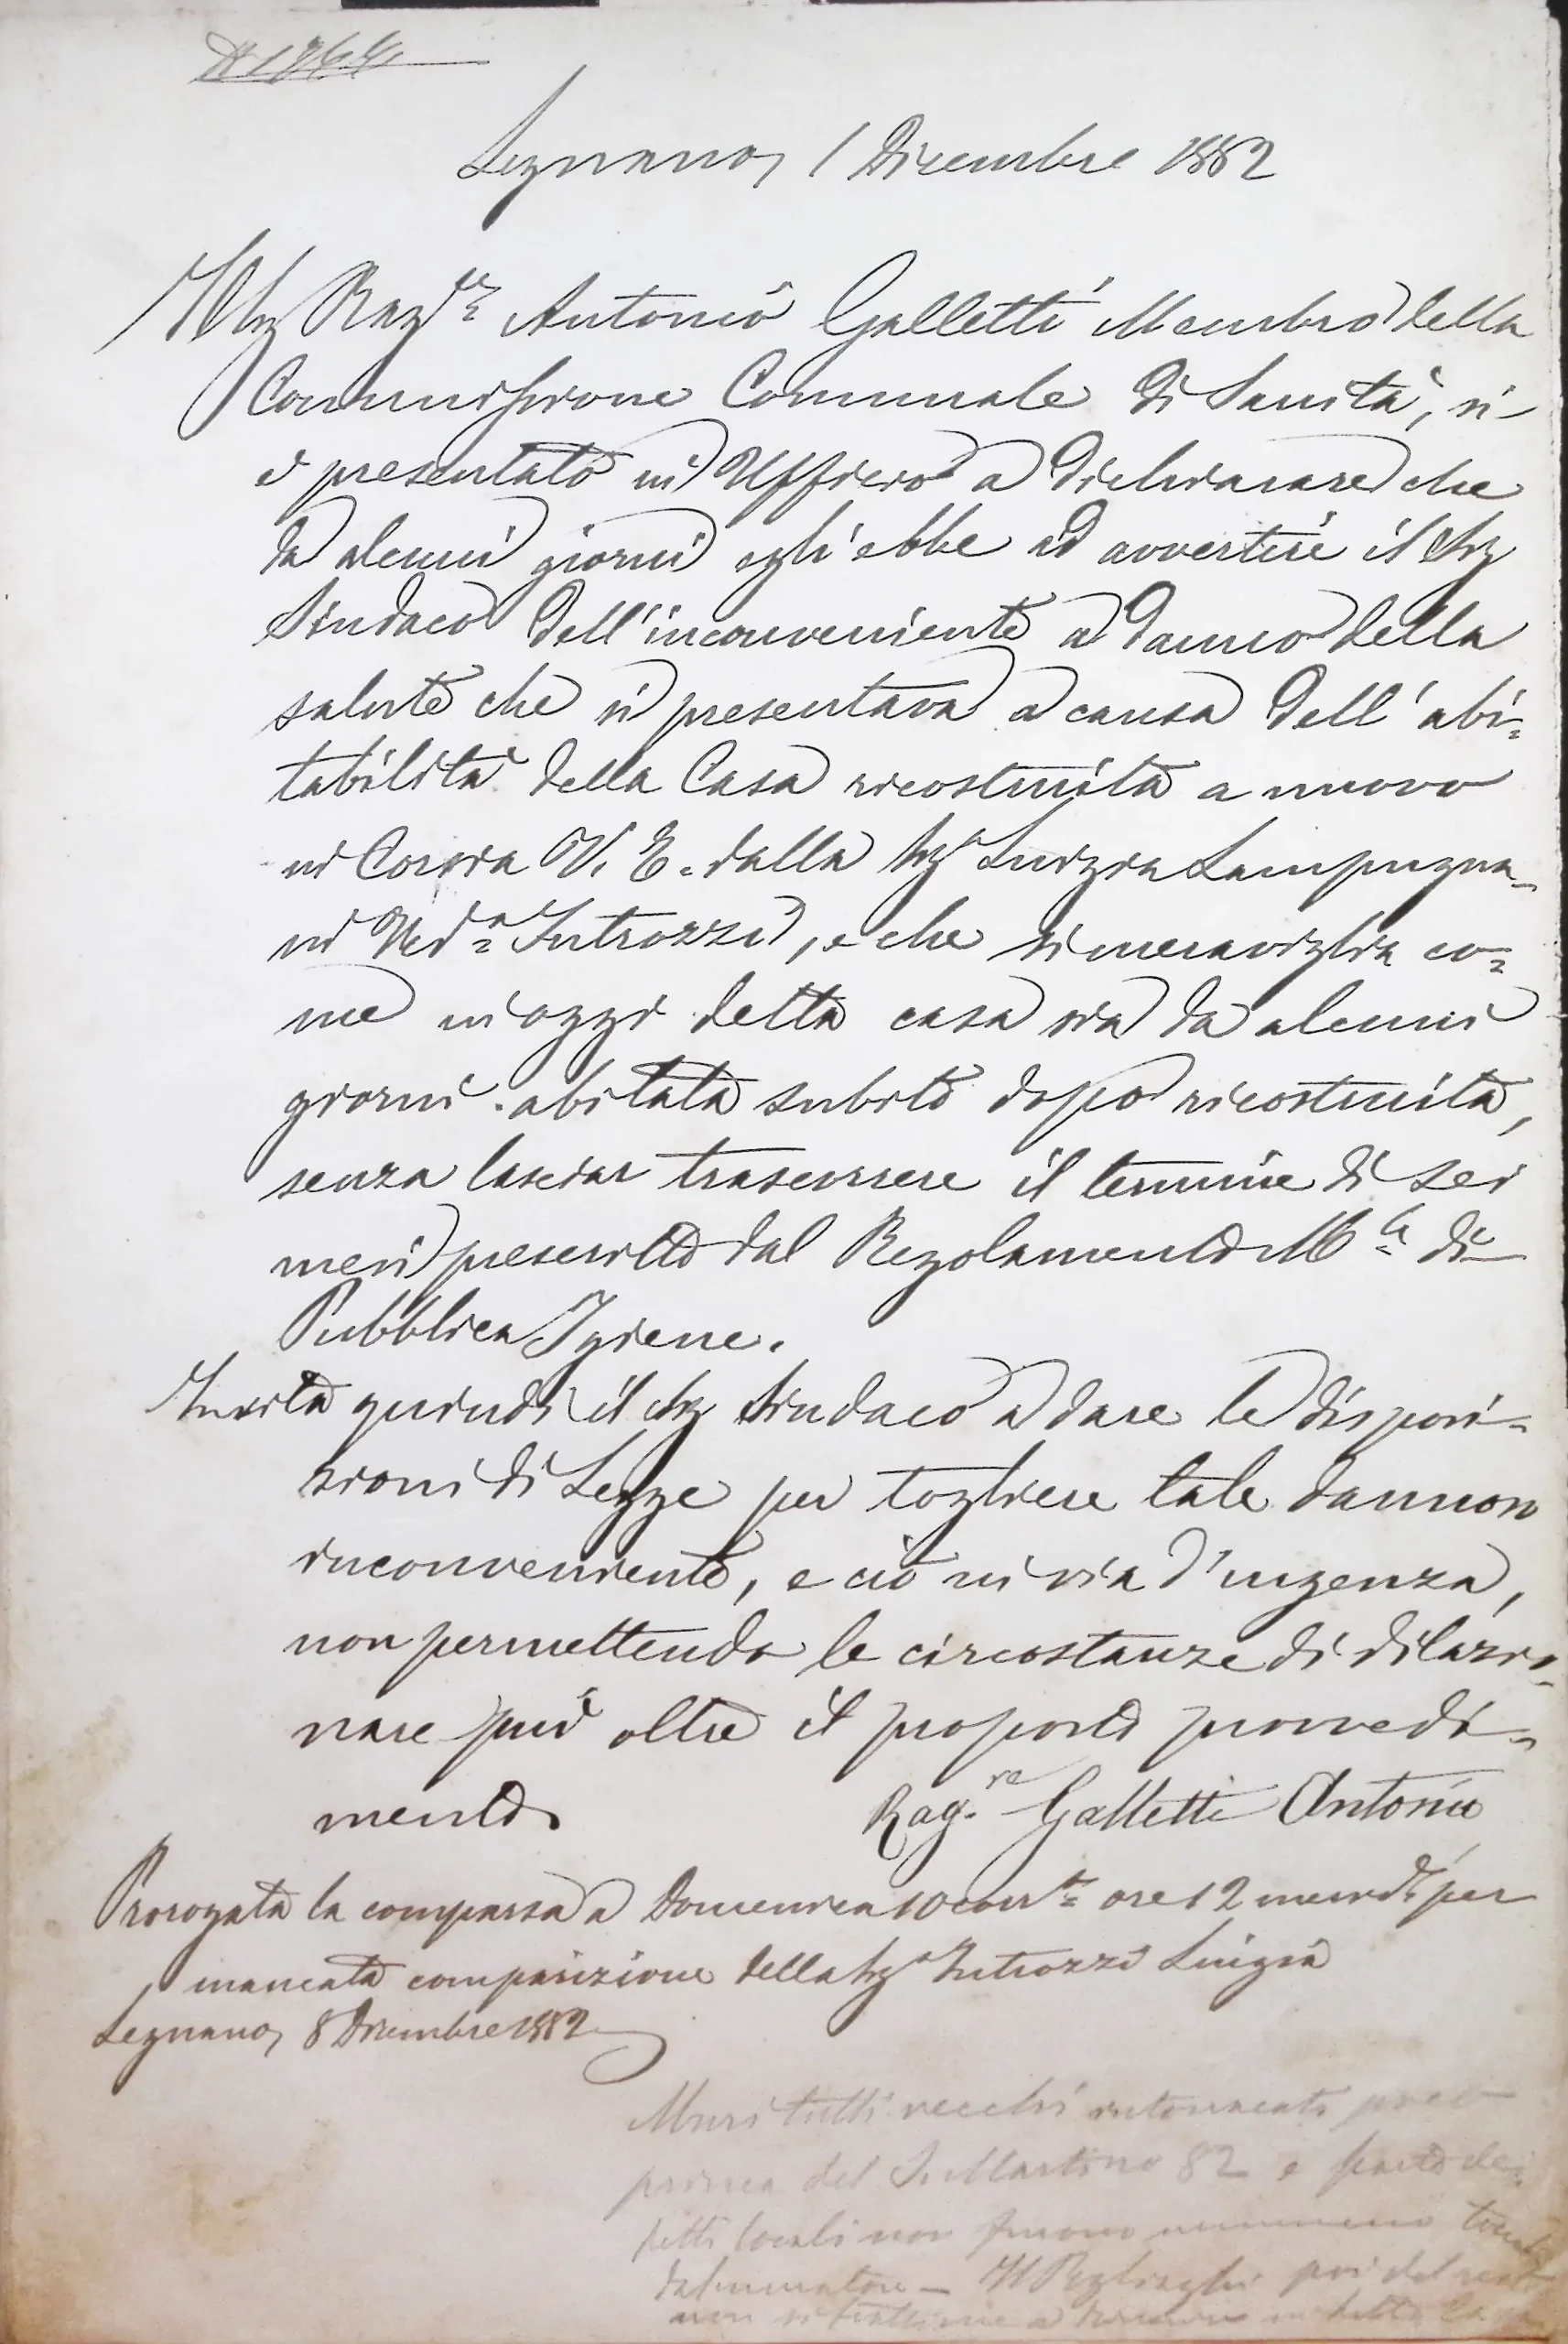 N 1264
Legnano, 1 Dicembre 1882
Il Sig Rag.re Antonio Galletti Membro della
Commissione Comunale di Sanità, si
è presentato in Ufficio a dichiarare che
da alcuni giorni egli ebbe ad avvertire il Sig
Sindaco dell'inconveniente a danno della
salute che si presentava a causa dell'abi=
tabilità della Casa ricostruita a nuovo
in Corsia V. E. dalla Sig.a Luigia Lampugna=
ni Ved.a Introzzi, e che si meraviglia co=
me in oggi detta casa sia da alcuni
giorni abitata subito dopo ricostruita,
senza lasciar trascorrere il termine di sei
mesi prescritto dal Regolamento M.le di
Pubblica Igiene.
Invita quindi il Sig Sindaco a dare le disposi=
zioni di Legge per togliere tale dannoso
inconveniente, e ciò in via d'urgenza,
non permettendo le circostanze di dilazio=
nare più oltre il proposto provvedi=
mento
Rag.re Galletti Antonio
Prorogata la comparsa a Domenica 10 corr.te ore 12 merid. per
mancata comparizione della Sig.a Introzzi Luigia
Legnano, 8 Dicembre 1882
Muri tutti vecchi intonacati poco
prima del S. Martino 82 e parte dei
detti locali non furono nemmeno
dal muratore — Il poi del
non si